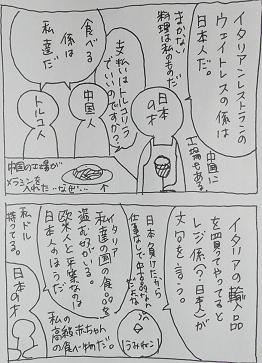 イタリアンレストランの
ウェイトレスの係は
日本人だ。
まかない
料理は私のものだ
中国に
工場もある
支払いはトルコリラ
でいいのですか?
食べる
係は
私達だ
日本
の木
中国人
トルコ人
中国の工場が
メラミンを
入れた…なぜ…
イタリアの輸入品
を四買ってやってると
レジ係(?:日本人)が
文句を言う。
日本負けたから
イタリア
私達の国の食品を
盗む奴がいる。
欧米人と卒業なのは
日本人のほうだ
うみねこ
私の
高級赤ちゃん
の食べ物だ。
私ドル
持ってる。
日本の木